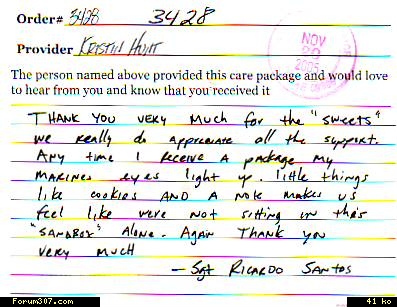 Order# 3428 3428
Provider Kristin Hunt
NOV
2005
The person named above provided this care package and would love
to hear from you and know that you received it
THANK YOU VERY MUCH for the "sweets"
we really do appreciate all the support.
Any time I receive a package my
marines eyes light up. little things
like cookies AND A note makes us
feel like were not sitting in this
"SANDBOX" Alone. Again THANK you
very much
— Sgt RICARDO SANTOS
Forum307.com 41 ko